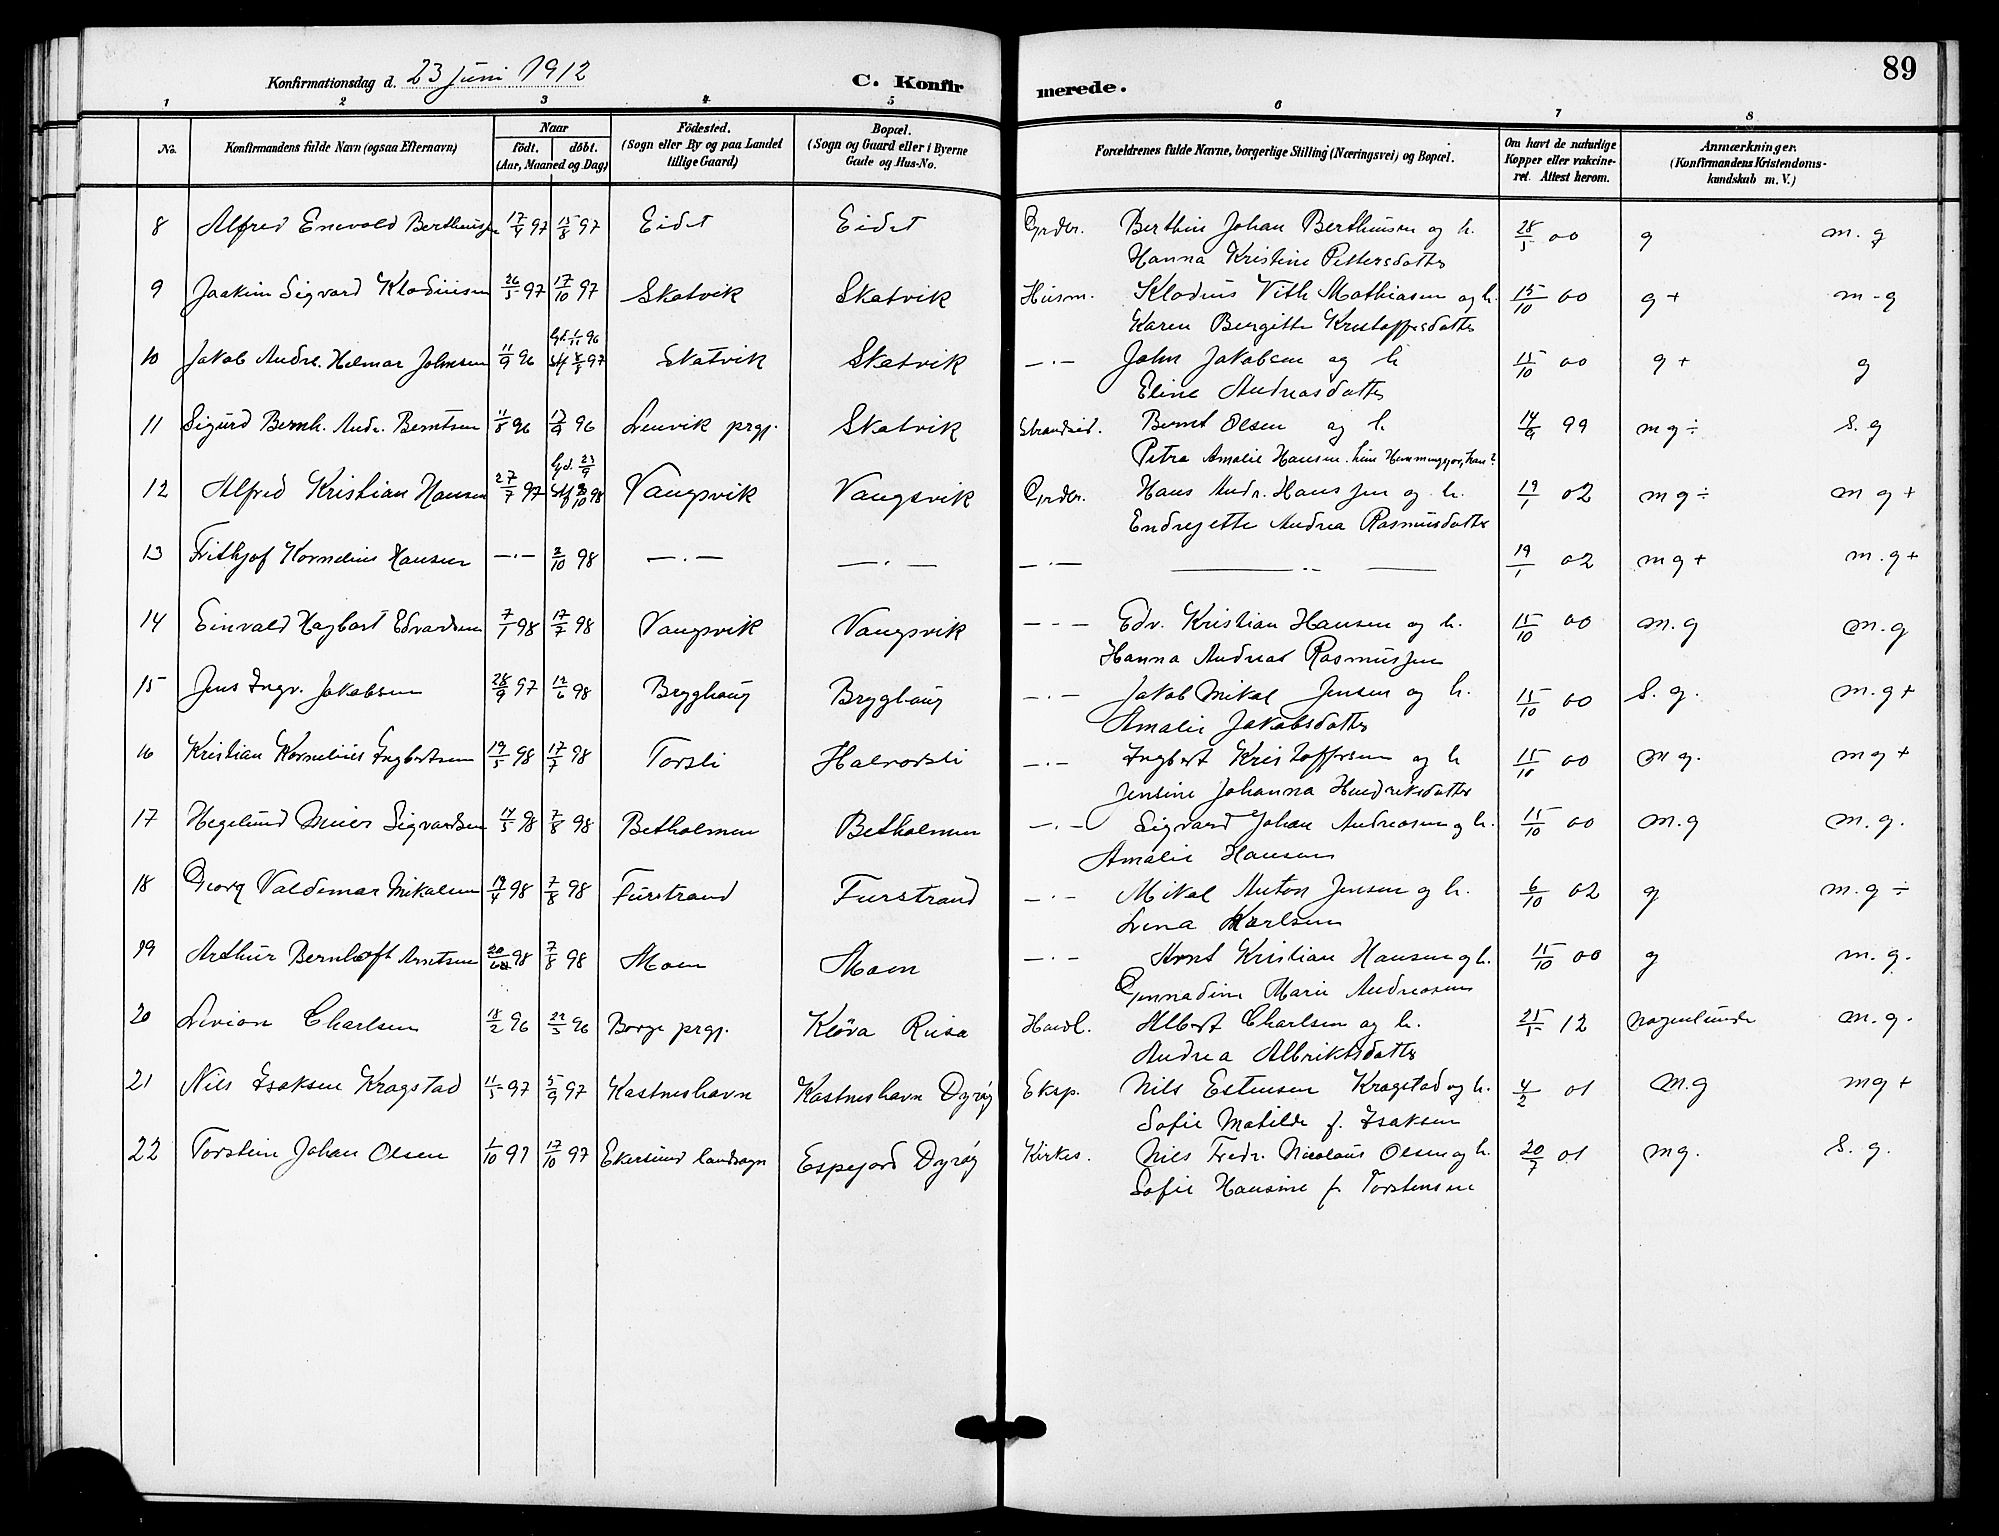 89
Konfirmationsdag d. 23 Juni 1912
C. Konfirmerede.
1 2 3 4 5 6 7 8
No.
Konfirmandens fulde Navn (ogsaa Efternavn)
Naar
födt. döbt.
(Aar, Maaned og Dag)
Födested.
(Sogn eller By og paa Landet
tillige Gaard)
Bopæl.
(Sogn og Gaard eller i Byerne
Gade og Hus-No.
Forældrenes fulde Navne, borgerlige Stilling (Næringsvei) og Bopæl.
Om havt de naturlige
Kopper eller vakcine-
ret. Attest herom.
Anmærkninger.
(Konfirmandens Kristendoms-
kundskab m. V.)
8 Alfred Enevold Berthinsen 17/4 97 15/8 97 Eidet Eidet Grdbr. Berthin Johan Berthinsen og h. 28/5 00 g m. g
Hanna Kristine Pettersdatter
9 Joakim Sigvard Klodiusen 26/5 97 17/10 97 Skatvik Skatvik Husm. Klodius Vith Mathiasen og h. 15/10 00 g + m - g
Karen Bergitte Kristoffersdatter
10 Jakob Andr. Helmar Johnsen 11/9 96 Gd. 1/11 96 Skatvik Skatvik -.- John Jakobsen og h 15/10 00 g + g
Eline Andreasdatter
11 Sigurd Bernh. Andr. Berntsen 11/8 96 17/9 96 Lenvik prgj. Skatvik Strandsid. Bernt Olsen og h. 14/9 99 m g ÷ S. g
Petra Amalie Hansen
12 Alfred Kristian Hansen 27/7 97 Gd. 23/9 Vangsvik Vangsvik Grdbr. Hans Andr. Hanssen og h. 19/1 02 m g ÷ m g +
Endrejette Andrea Rasmusdatter
13 Frithjof Kornelius Hansen -.- 2/10 98 -.- -.- -.- -..- 19/1 02 m g + m. g +
14 Einvald Hagbart Edvardsen 7/1 98 17/7 98 Vangsvik Vangsvik --- Edv. Kristian Hansen og h. 15/10 00 m. g m. g
Hanna Andrea Rasmussen
15 Jens Ingv. Jakobsen 28/9 97 12/6 98 Brygghaug Brygghaug -.- Jakob Mikal Jensen og h. 15/10 00 S. g. m. g +
Amalie Jakobsdatter
16 Kristian Kornelius Ingbertsen 19/5 98 17/7 98 Torsli Halvorsli -.- Ingbert Kristoffersen og h 15/10 00 m g. m g +
Jensine Johanna Hendriksdatter
17 Hegelund Meier Sigvardsen 14/5 98 7/8 98 Betholmen Betholmen -.- Sigvard Johan Andreasen og h. 15/10 00 m. g m. g.
Amalie Hansen
18 Georg Valdemar Mikalsen 19/4 98 7/8 98 Furstrand Furstrand -.- Mikal Anton Jensen og h. 6/10 02 g m. g ÷
Lena Karlsen
19 Arthur Bernhoft Arntsen 98 7/8 98 Moen Moen -.- Arnt Kristian Hansen og h. 15/10 00 g m. g.
Gunnadine Marie Andreasen
20 Livion Charlsen 18/2 96 22/3 96 Borge prgj. Klöva Reisa Handl. Albert Charlsen og h. 25/5 12 nogenlunde m. g.
Andrea Albriktsdatter
21 Nils Isaksen Kragstad 11/5 97 5/9 97 Kastneshavn Kastneshavn Dyröy Eksp. Nils Estensen Kragstad og h. 4/2 01 m. g m g +
Sofie Matilde f. Isaksen
22 Torstein Johan Olsen 1/10 97 17/10 97 Ekersund landsogn Espejord Dyröy Kirkes. Nils Fredr. Nicolaus Olsen og h. 20/7 01 m g. S. g.
Sofie Hansine f. Torstensen